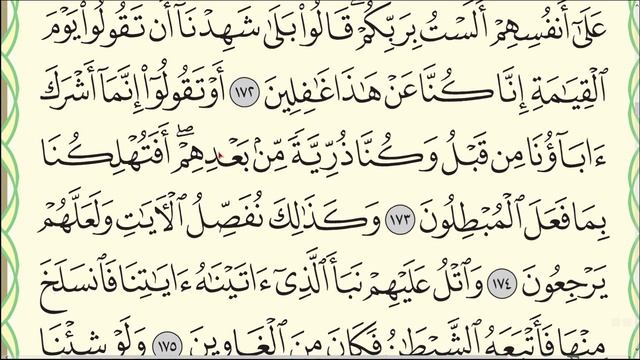 عَلَىٰٓ أَنفُسِهِمْ أَلَسْتُ بِرَبِّكُمْ ۖ قَالُوا۟ بَلَىٰ شَهِدْنَآ أَن تَقُولُوا۟ يَوْمَ
ٱلْقِيَـٰمَةِ إِنَّا كُنَّا عَنْ هَـٰذَا غَـٰفِلِينَ ١٧٢ أَوْ تَقُولُوٓا۟ إِنَّمَآ أَشْرَكَ
ءَابَآؤُنَا مِن قَبْلُ وَكُنَّا ذُرِّيَّةً مِّنۢ بَعْدِهِمْ ۖ أَفَتُهْلِكُنَا
بِمَا فَعَلَ ٱلْمُبْطِلُونَ ١٧٣ وَكَذَٰلِكَ نُفَصِّلُ ٱلْـَٔايَـٰتِ وَلَعَلَّهُمْ
يَرْجِعُونَ ١٧٤ وَٱتْلُ عَلَيْهِمْ نَبَأَ ٱلَّذِىٓ ءَاتَيْنَـٰهُ ءَايَـٰتِنَا فَٱنسَلَخَ
مِنْهَا فَأَتْبَعَهُ ٱلشَّيْطَـٰنُ فَكَانَ مِنَ ٱلْغَاوِينَ ١٧٥ وَلَوْ شِئْنَا